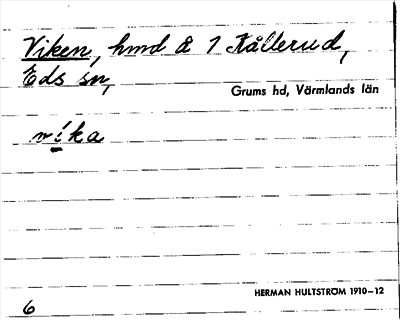 Viken, hmd å 1 Kållerud,
Eds sn,
Grums hd, Värmlands län
víka
HERMAN HULTSTRÖM 1910–12
6